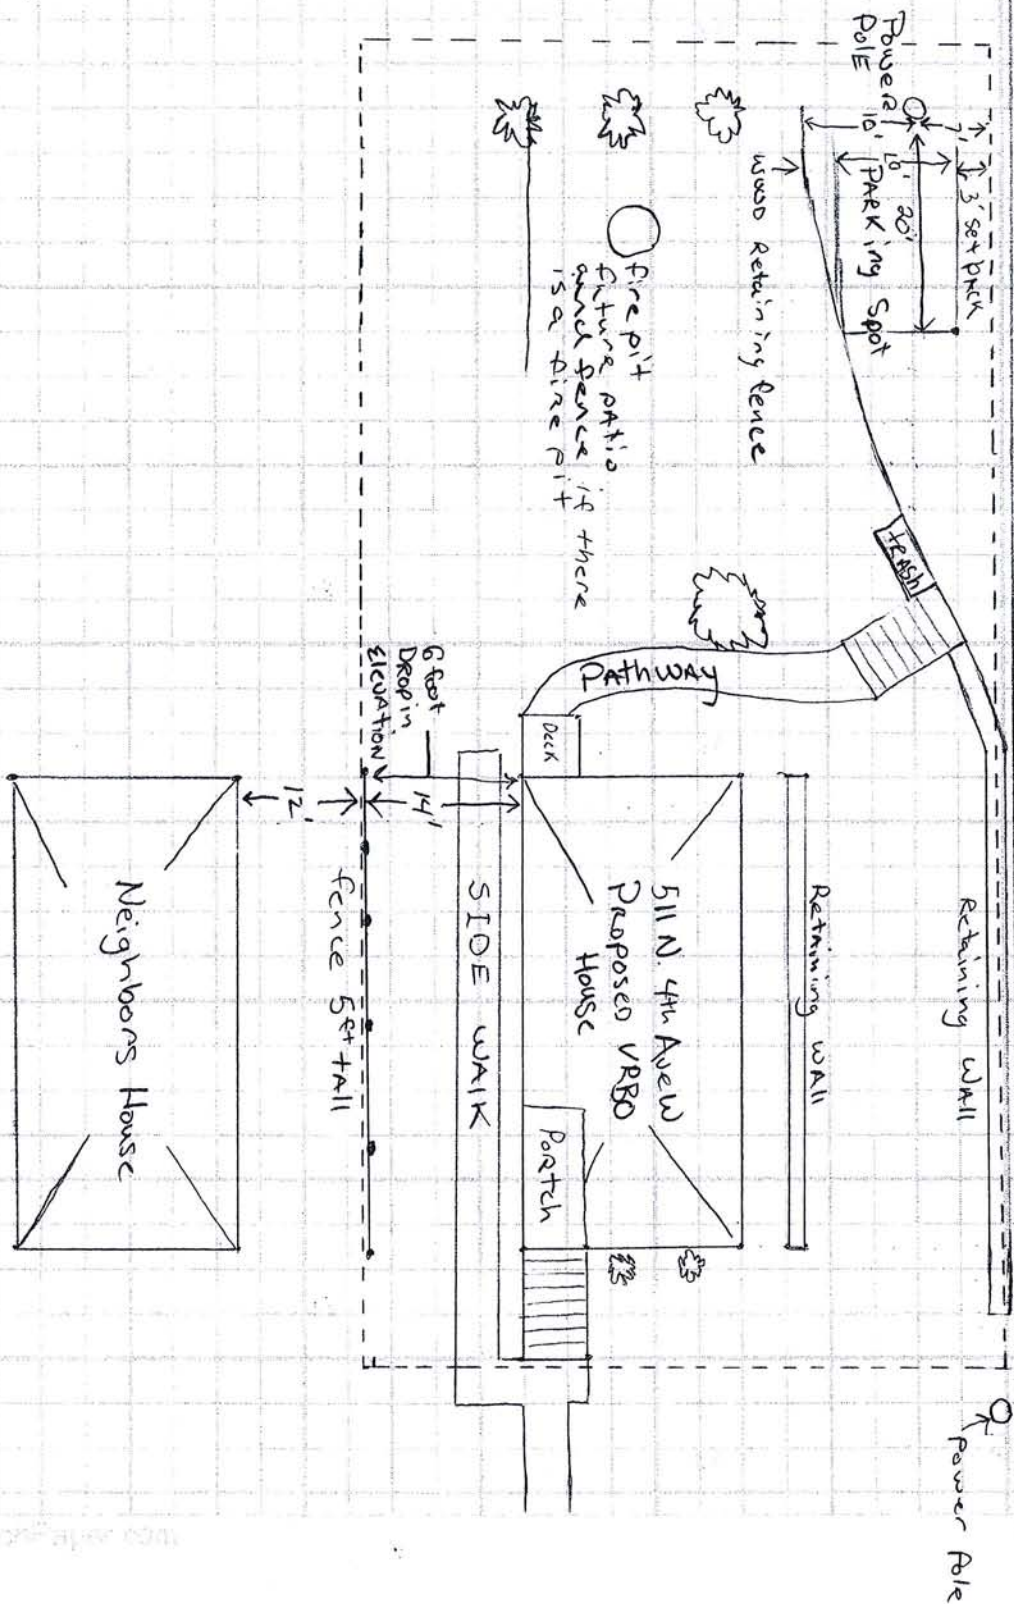 Power
Pole
10'
7'
3' setback
10'
20'
PARKing Spot
wood Retaining fence
fire pit
future patio
and fence if there
is a fire pit
TRASH
Pathway
Deck
6 foot
DRop in
ElevATION
14'
12'
Retaining Wall
Retaining Wall
511 N. 4th Ave W
Proposed VRBO
House
Portch
SIDE WAlK
fence 5ft tAll
Neighbors House
power Pole